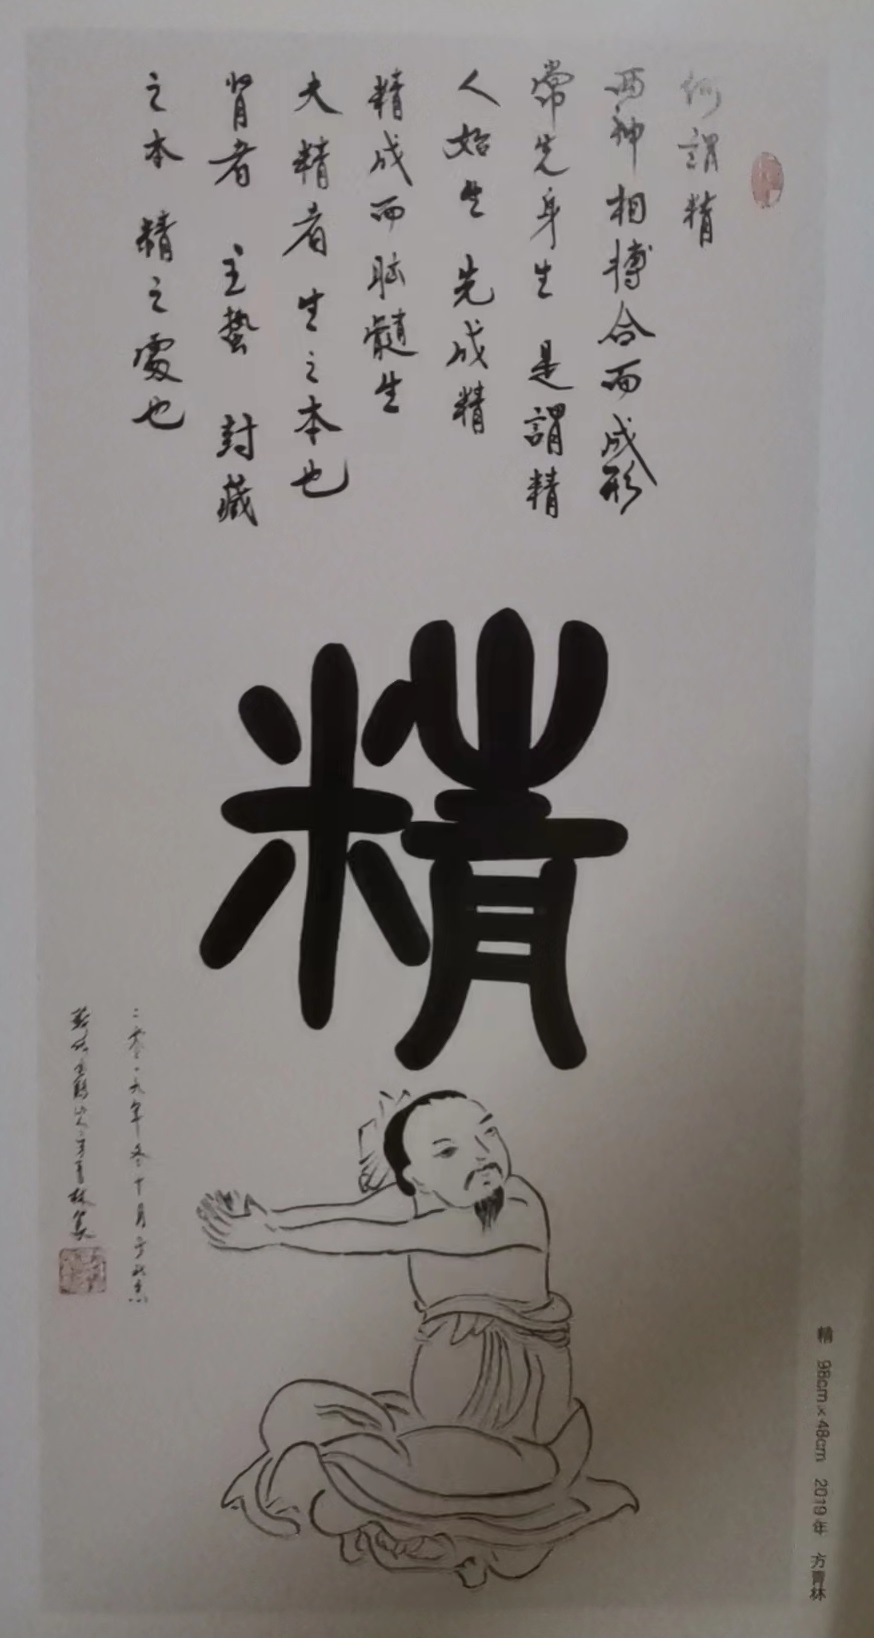 何謂精
兩神相搏合而成形
常先身生 是謂精
人始生 先成精
精成而脑髓生
夫精者生之本也
肾者 主蟄 封藏
之本 精之處也
精
二零一九年冬十月于北京
林篆
精 98cm×48cm 2019年 方青林